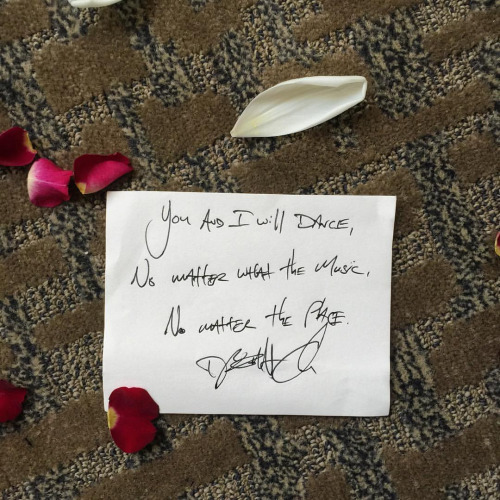 You And I will DANCE,
No matter what the Music,
No matter the Place.